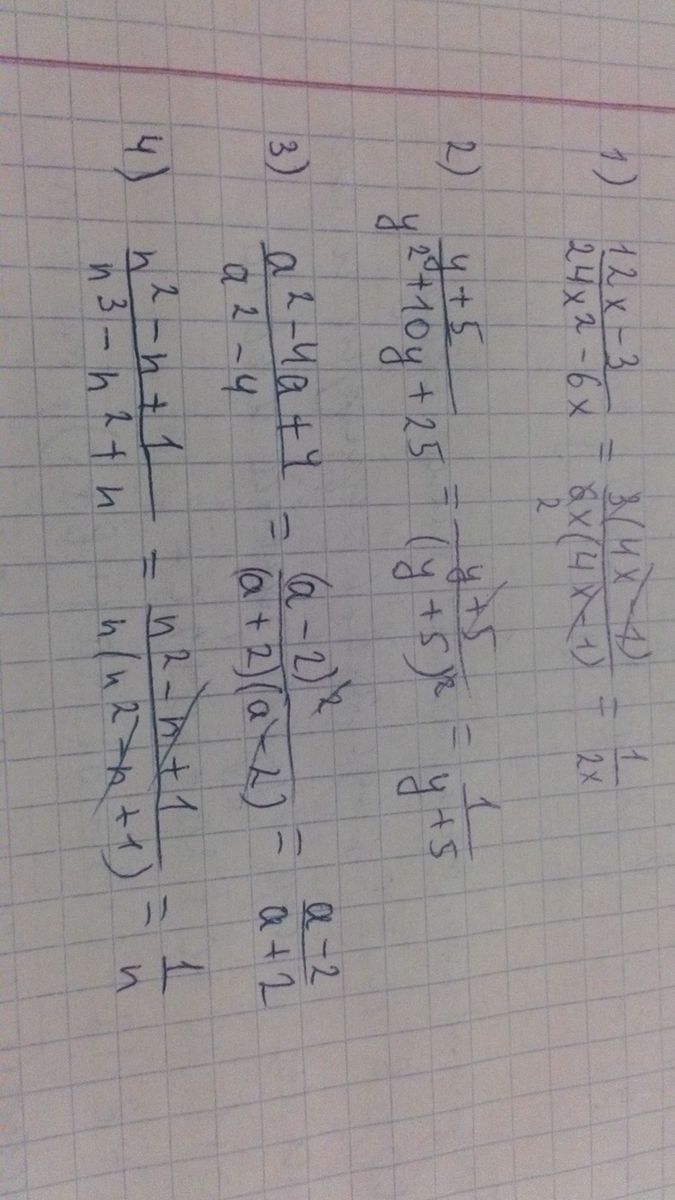 1) \frac{12x-3}{24x^2-6x} = \frac{3(4x-1)}{6x(4x-1)} = \frac{1}{2x}
2
2) \frac{y+5}{y^2+10y+25} = \frac{y+5}{(y+5)^2} = \frac{1}{y+5}
3) \frac{a^2-4a+4}{a^2-4} = \frac{(a-2)^2}{(a+2)(a-2)} = \frac{a-2}{a+2}
4) \frac{n^2-n+1}{n^3-n^2+n} = \frac{n^2-n+1}{n(n^2-n+1)} = \frac{1}{n}